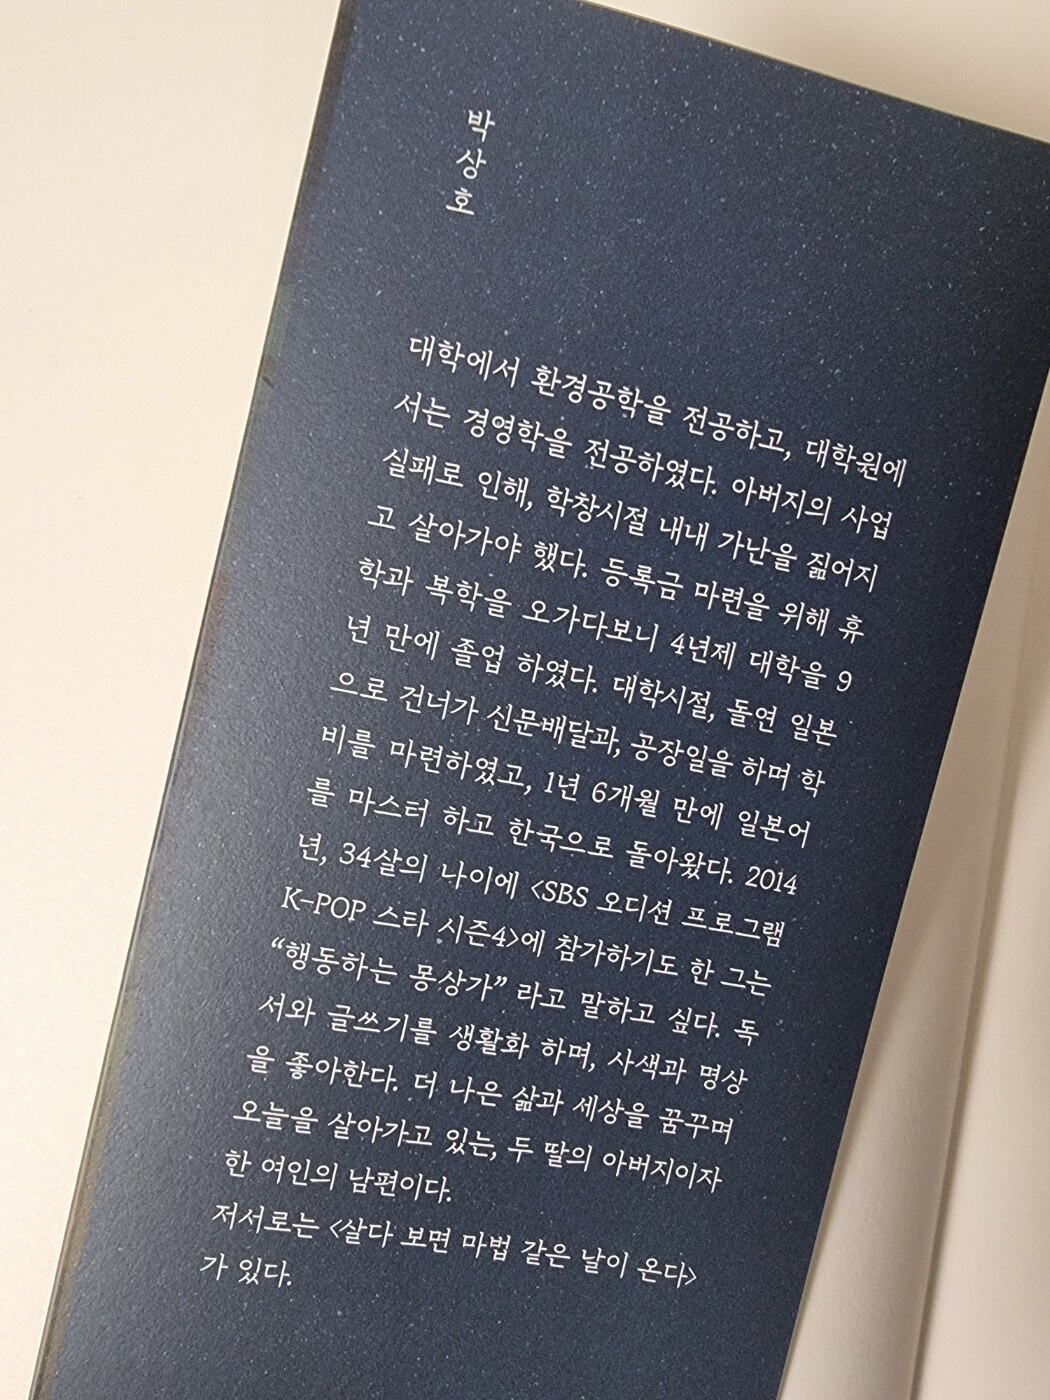 박상호
대학에서 환경공학을 전공하고, 대학원에
서는 경영학을 전공하였다. 아버지의 사업
실패로 인해, 학창시절 내내 가난을 짊어지
고 살아가야 했다. 등록금 마련을 위해 휴
학과 복학을 오가다보니 4년제 대학을 9
년 만에 졸업 하였다. 대학시절, 돌연 일본
으로 건너가 신문배달과, 공장일을 하며 학
비를 마련하였고, 1년 6개월 만에 일본어
를 마스터 하고 한국으로 돌아왔다. 2014
년, 34살의 나이에 <SBS 오디션 프로그램
K-POP 스타 시즌4>에 참가하기도 한 그는
“행동하는 몽상가” 라고 말하고 싶다. 독
서와 글쓰기를 생활화 하며, 사색과 명상
을 좋아한다. 더 나은 삶과 세상을 꿈꾸며
오늘을 살아가고 있는, 두 딸의 아버지이자
한 여인의 남편이다.
저서로는 <살다 보면 마법 같은 날이 온다>
가 있다.